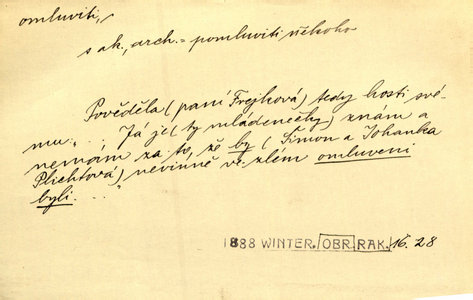 omluviti,
s ak., arch. = pomluviti někoho
Pověděla (paní Frejková) tedy hosti své-
mu: ... "Já je (ty mládenečky) znám a
nemám za to, že by (Šimon a Johanka
Plichtová) nevinně ve zlém omluveni
byli. ..."
1888 WINTER, OBR. RAK. 16. 28